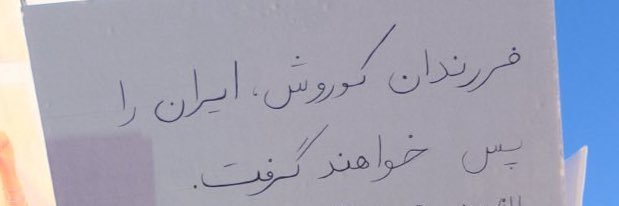 فرزندان کوروش، ایران را
پس خواهند گرفت.